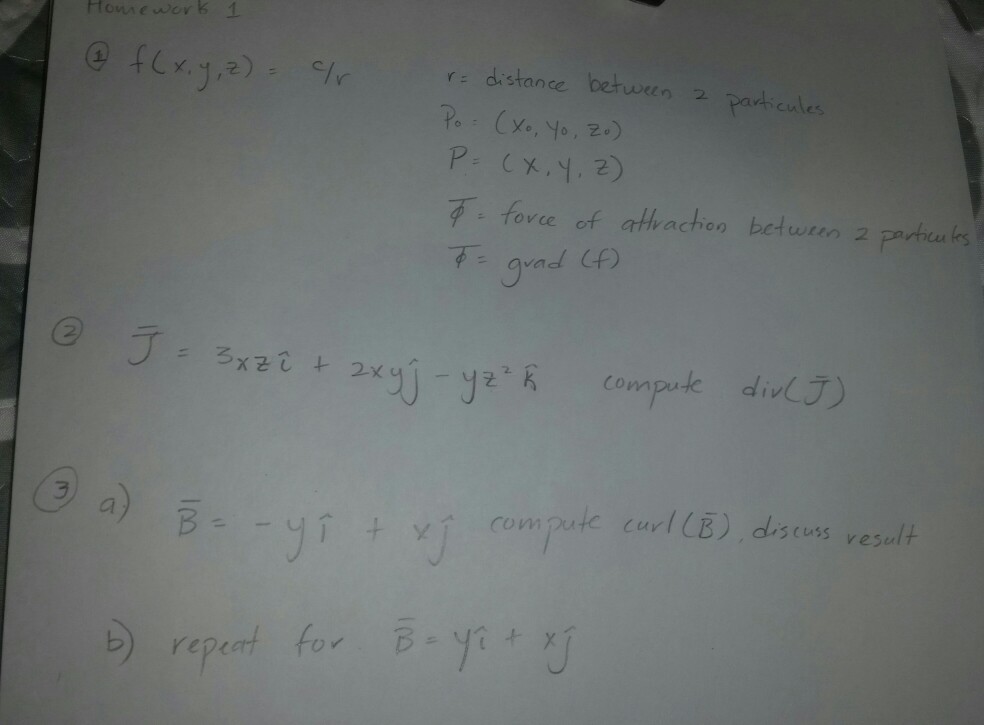 Homework 1
① f(x,y,z) = c/r
r = distance between 2 particules
P₀ = (x₀, y₀, z₀)
P = (x, y, z)
Φ̅ = force of attraction between 2 particules
Φ̅ = grad (f)
② J̅ = 3xz î + 2xy ĵ - yz² k̂ compute div(J̅)
③ a) B̅ = - y î + x ĵ compute curl (B̅), discuss result
b) repeat for B̅ = y î + x ĵ